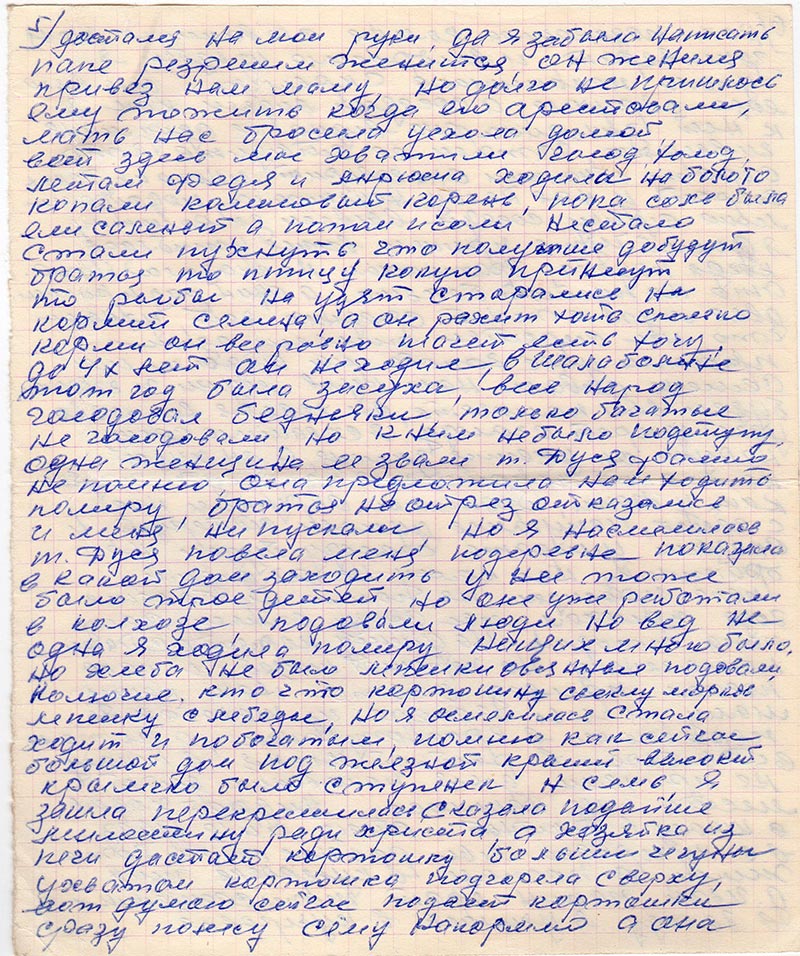 5/ достался на мои руки, да я забыла написать
папе резрешили женится, он женился
привез нам маму, но долго не пришлось
ему пожить когда его арестовали,
мать нас бросела уехола домой,
вот здесь мас хватили голод, холод,
летам Федя и ходили на болото
копали камысовый корень, пока соль была
ели соленый а патам и соли нестало
стали пухнуть что получше добудут
братья то птицу какую принесут
то рыбы на удят старались на
кормит семена, а он режит хоть сколько
корми он всеровно плачет есть хочу,
до 4х лет он неходил, в Шалаболихе
этот год была засуха, весь народ
голодовал бедняки, только багатые
не голодовали но к ним небыло подступу,
одна женщина ее звали т. Дуся фамилию
не помню, она предложила нам ходить
помиру, братья на отрез отказались
и меня, ни пускали но я насмелилась
т. Дуся повела меня подеревне показала
в какой дом заходить у ней тоже
было трое детей но они уже работали
в колхозе подовали люди но вед не
одна я ходила помиру нищих много было.
но хлеба не было лепешки овсяные подовали,
колючие. кто что картошину свеклу морков
лепешку с лебеды, но я осмелилась стала
ходит и побогатым, помню как сейчас
большой дом под железной крышей высокий
крылечко было ступенек н семь, я
зашла перекрестилась сказала подайте
милостину ради христа а хозяйка из
печи достаёт картошку большим чегуны
ухватом картошка подгорела сверху,
вот думаю сейчас подаст картошки
сразу понесу сёму накормлю а она